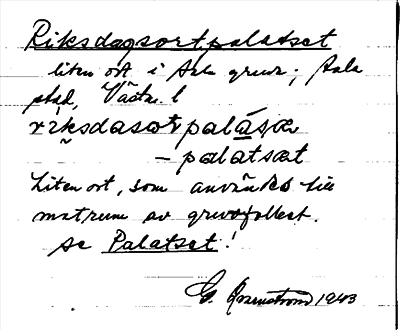 Riksdagsortpalatset
liten ort i Sala gruva; Sala
stad, Västm. l
riksdasorpalásæ
– palatsæt
Liten ort, som användes till
matrum av gruvfolket.
se Palatset!
G. 1943